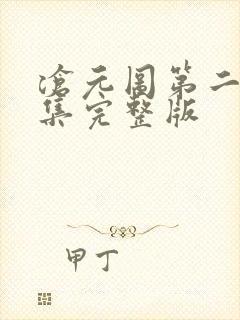 滄元圖第二
集完整版
甲丁